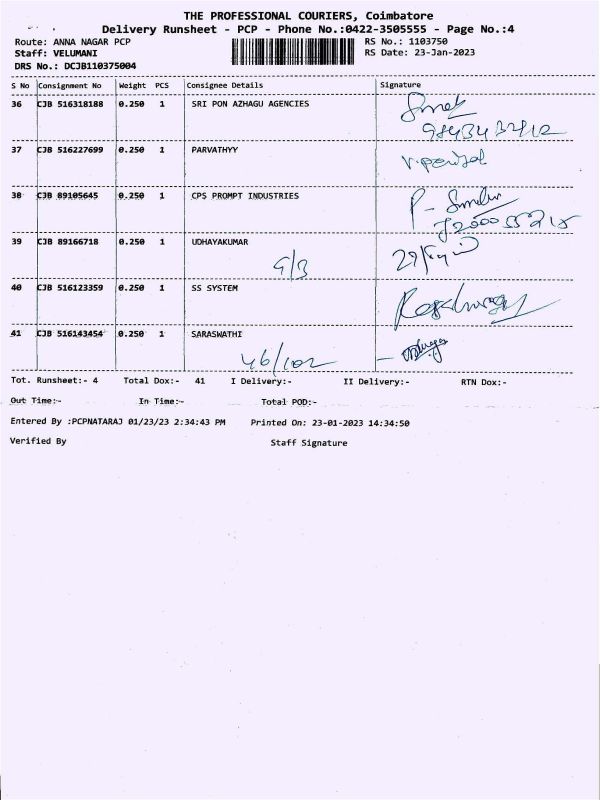 THE PROFESSIONAL COURIERS, Coimbatore
Delivery Runsheet - PCP - Phone No.:0422-3505555 - Page No.:4
Route: ANNA NAGAR PCP RS No.: 1103750
Staff: VELUMANI RS Date: 23-Jan-2023
DRS No.: DCJB110375004
S No Consignment No Weight PCS Consignee Details Signature
36 CJB 516318188 0.250 1 SRI PON AZHAGU AGENCIES
37 CJB 516227699 0.250 1 PARVATHYY
38 CJB 89105645 0.250 1 CPS PROMPT INDUSTRIES
39 CJB 89166718 0.250 1 UDHAYAKUMAR
9/3
40 CJB 516123359 0.250 1 SS SYSTEM
41 CJB 516143454 0.250 1 SARASWATHI
46/102
Tot. Runsheet:- 4 Total Dox:- 41 I Delivery:- II Delivery:- RTN Dox:-
Out Time:- In Time:- Total POD:-
Entered By :PCPNATARAJ 01/23/23 2:34:43 PM Printed On: 23-01-2023 14:34:50
Verified By Staff Signature